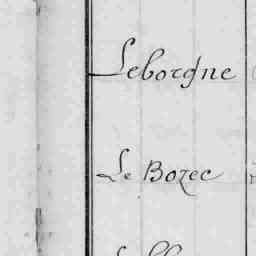 Leborgne
Le Bozec